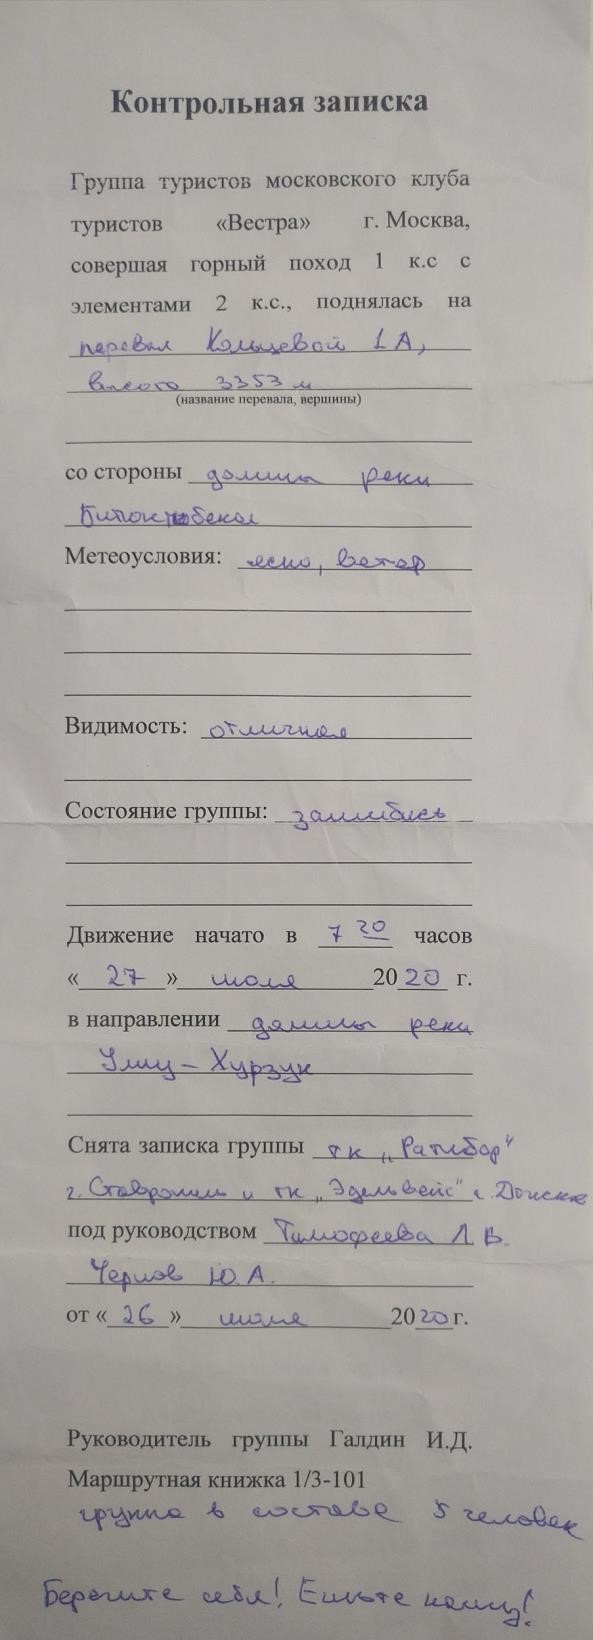 Контрольная записка
Группа туристов московского клуба
туристов «Вестра» г. Москва,
совершая горный поход 1 к.с с
элементами 2 к.с., поднялась на
перевал Кольцевой 1А,
высота 3353 м
(название перевала, вершины)
со стороны долины реки
Битюктюбекол
Метеоусловия: ясно, ветер
Видимость: отличная
Состояние группы: зашибись
Движение начато в 7 20 часов
«27» июля 2020 г.
в направлении долины реки
Улу-Хурзук
Снята записка группы тк „Ратибор"
г. Ставрополь и тк „Эдельвейс" г.
под руководством Тимофеева Л.В.
Чернов Ю.А.
от «26» июля 2020г.
Руководитель группы Галдин И.Д.
Маршрутная книжка 1/3-101
группа в составе 5 человек
Берегите себя! Ешьте кашу!